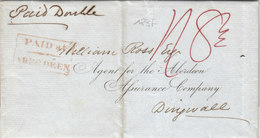 Paid Double
1857
PAID AT
ABERDEEN
William Ross Esq
Agent for the Aberdeen
Assurance Company
Dingwall